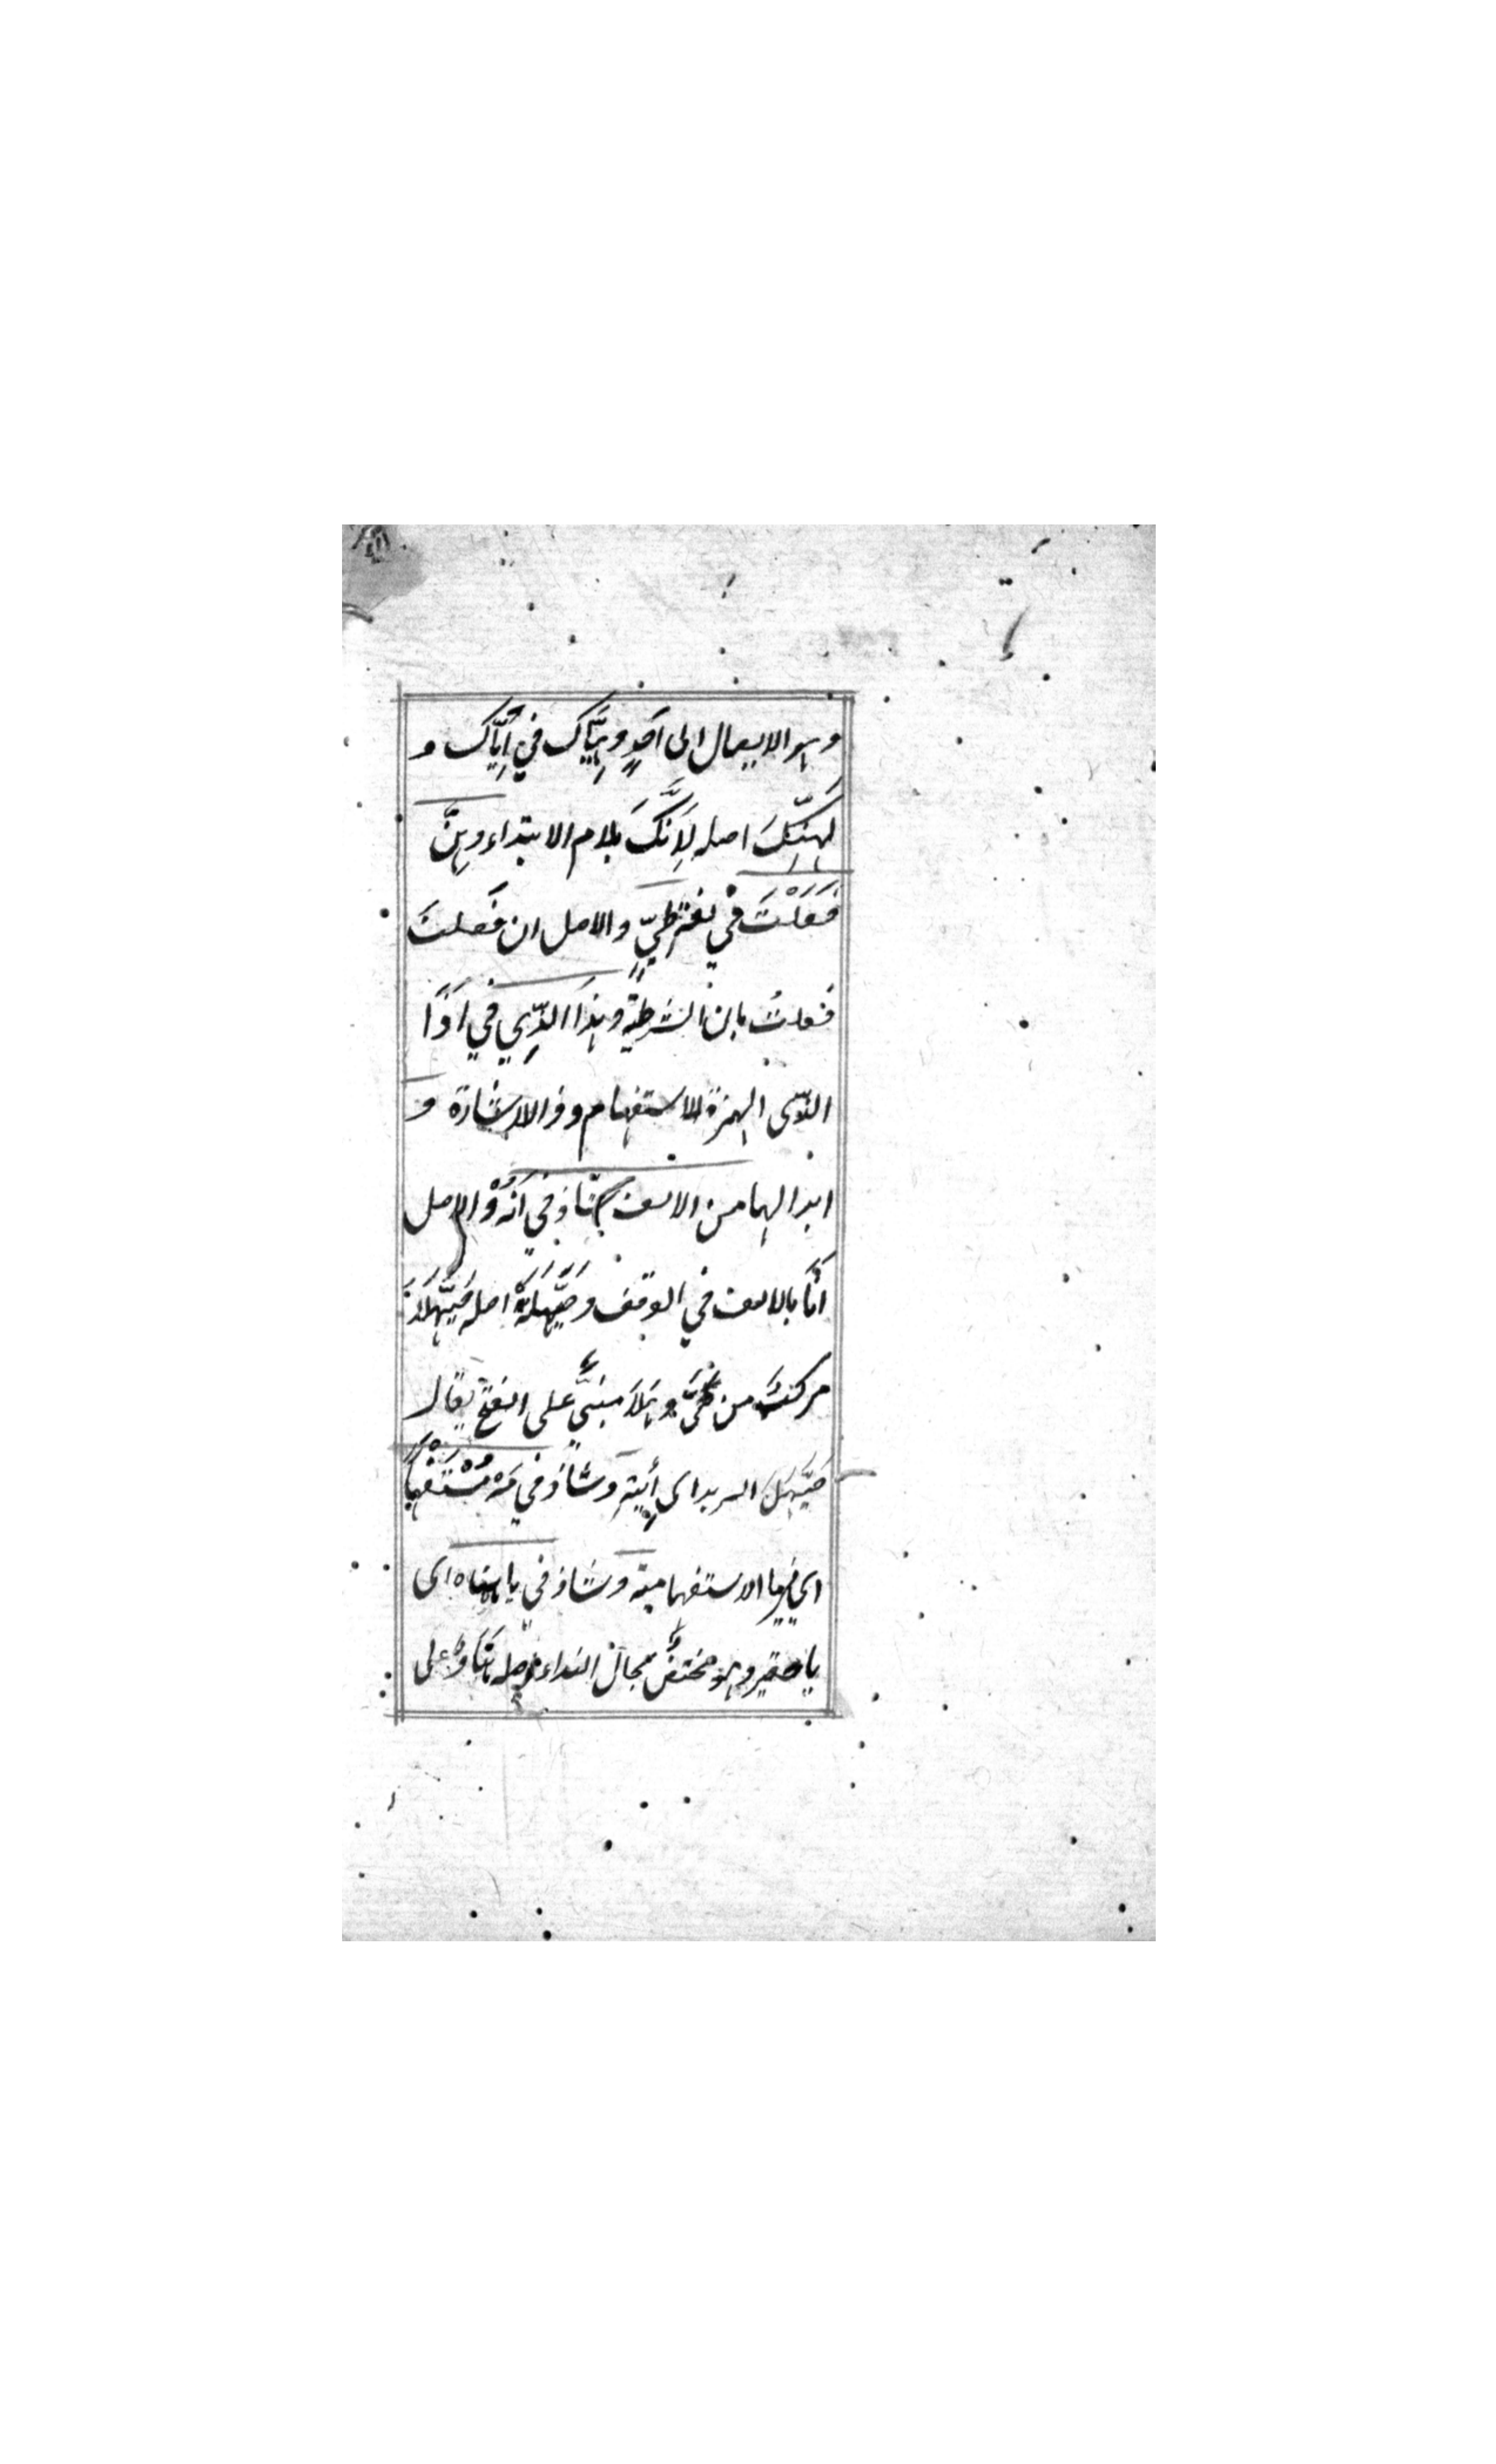 وهو الايصال الى احدٍ وهِيَّاك في اِيَّاك و
لَهِنَّكَ اصله لَاِنَّكَ بلام الابتداء وهِنْ
فَعَلْتَ في لغة طيٍّ والاصل ان فَعلتَ
فعلتُ بان الشرطية وهذا الذِي في اَذَا
الذي الهمزة للاستفهام وذا للاشارة و
ابدالها من الالف شاذ في اَنَهْ والاصل
اَنَا بالالف في الوقف وحَيَّهَلَهْ اصله حَيَّهَلَا
مركبٌ من حَيَّ وهَلَا مبنيٌّ على الفتح يقال
حَيَّهَلَ الثريد اى اِيتِهِ وشاذ في مَهْ مُسْتَفْهِمًا
اي في ما الاستفهامية وشاذ في يا هناه اى
يا حقير وهو مختصٌّ بحال النداء اصله هَنَاوٌ على